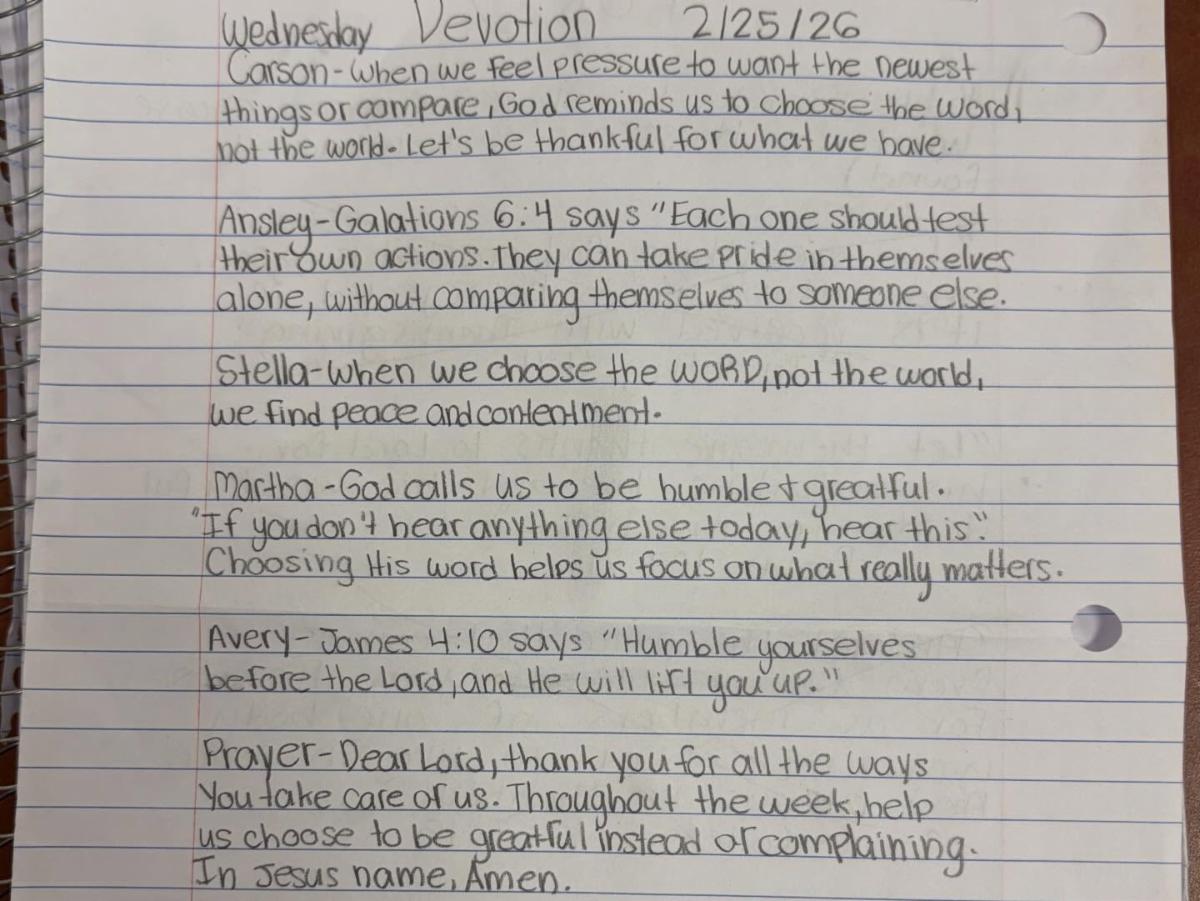 Wednesday Devotion 2/25/26
Carson-When we feel pressure to want the newest
things or compare, God reminds us to choose the word,
not the world. Let's be thankful for what we have.
Ansley-Galations 6:4 says "Each one should test
their own actions. They can take pride in themselves
alone, without comparing themselves to someone else.
Stella-When we choose the WORD, not the world,
we find peace and contentment.
Martha-God calls us to be humble & greatful.
"If you don't hear anything else today, hear this".
Choosing His word helps us focus on what really matters.
Avery-James 4:10 says "Humble yourselves
before the Lord, and He will lift you up."
Prayer-Dear Lord, thank you for all the ways
You take care of us. Throughout the week, help
us choose to be greatful instead of complaining.
In Jesus name, Amen.